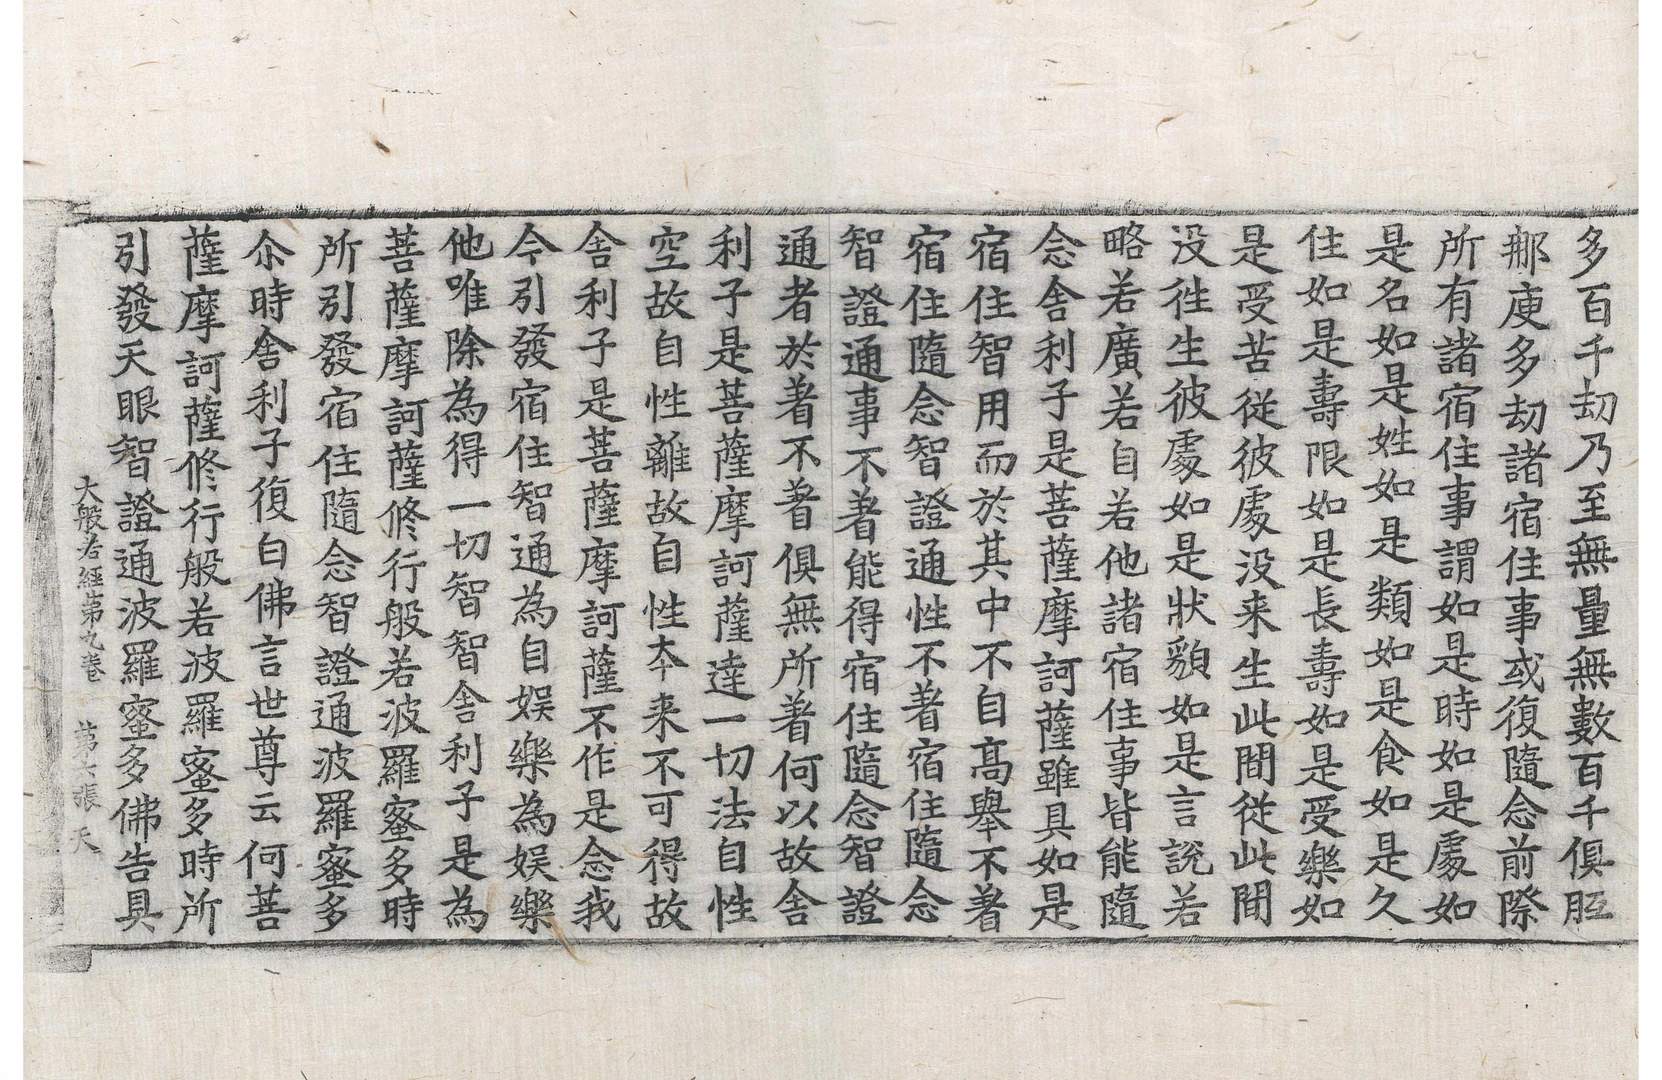 多百千劫乃至無量無數百千俱胝
那庾多劫諸宿住事或復隨念前際
所有諸宿住事謂如是時如是處如
是名如是姓如是類如是食如是久
住如是壽限如是長壽如是受樂如
是受苦從彼處没来生此間從此間
没徃生彼處如是狀貌如是言說若
略若廣若自若他諸宿住事皆能隨
念舍利子是菩薩摩訶薩雖具如是
宿住智用而於其中不自高舉不著
宿住隨念智證通性不著宿住隨念
智證通事不著能得宿住隨念智證
通者於著不著俱無所著何以故舍
利子是菩薩摩訶薩達一切法自性
空故自性離故自性夲来不可得故
舍利子是菩薩摩訶薩不作是念我
今引發宿住智通為自娛樂為娛樂
他唯除為得一切智智舍利子是為
菩薩摩訶薩修行般若波羅蜜多時
所引發宿住隨念智證通波羅蜜多
尒時舍利子復白佛言世尊云何菩
薩摩訶薩修行般若波羅蜜多時所
引發天眼智證通波羅蜜多佛告具
大般若經第九卷 第六張 天